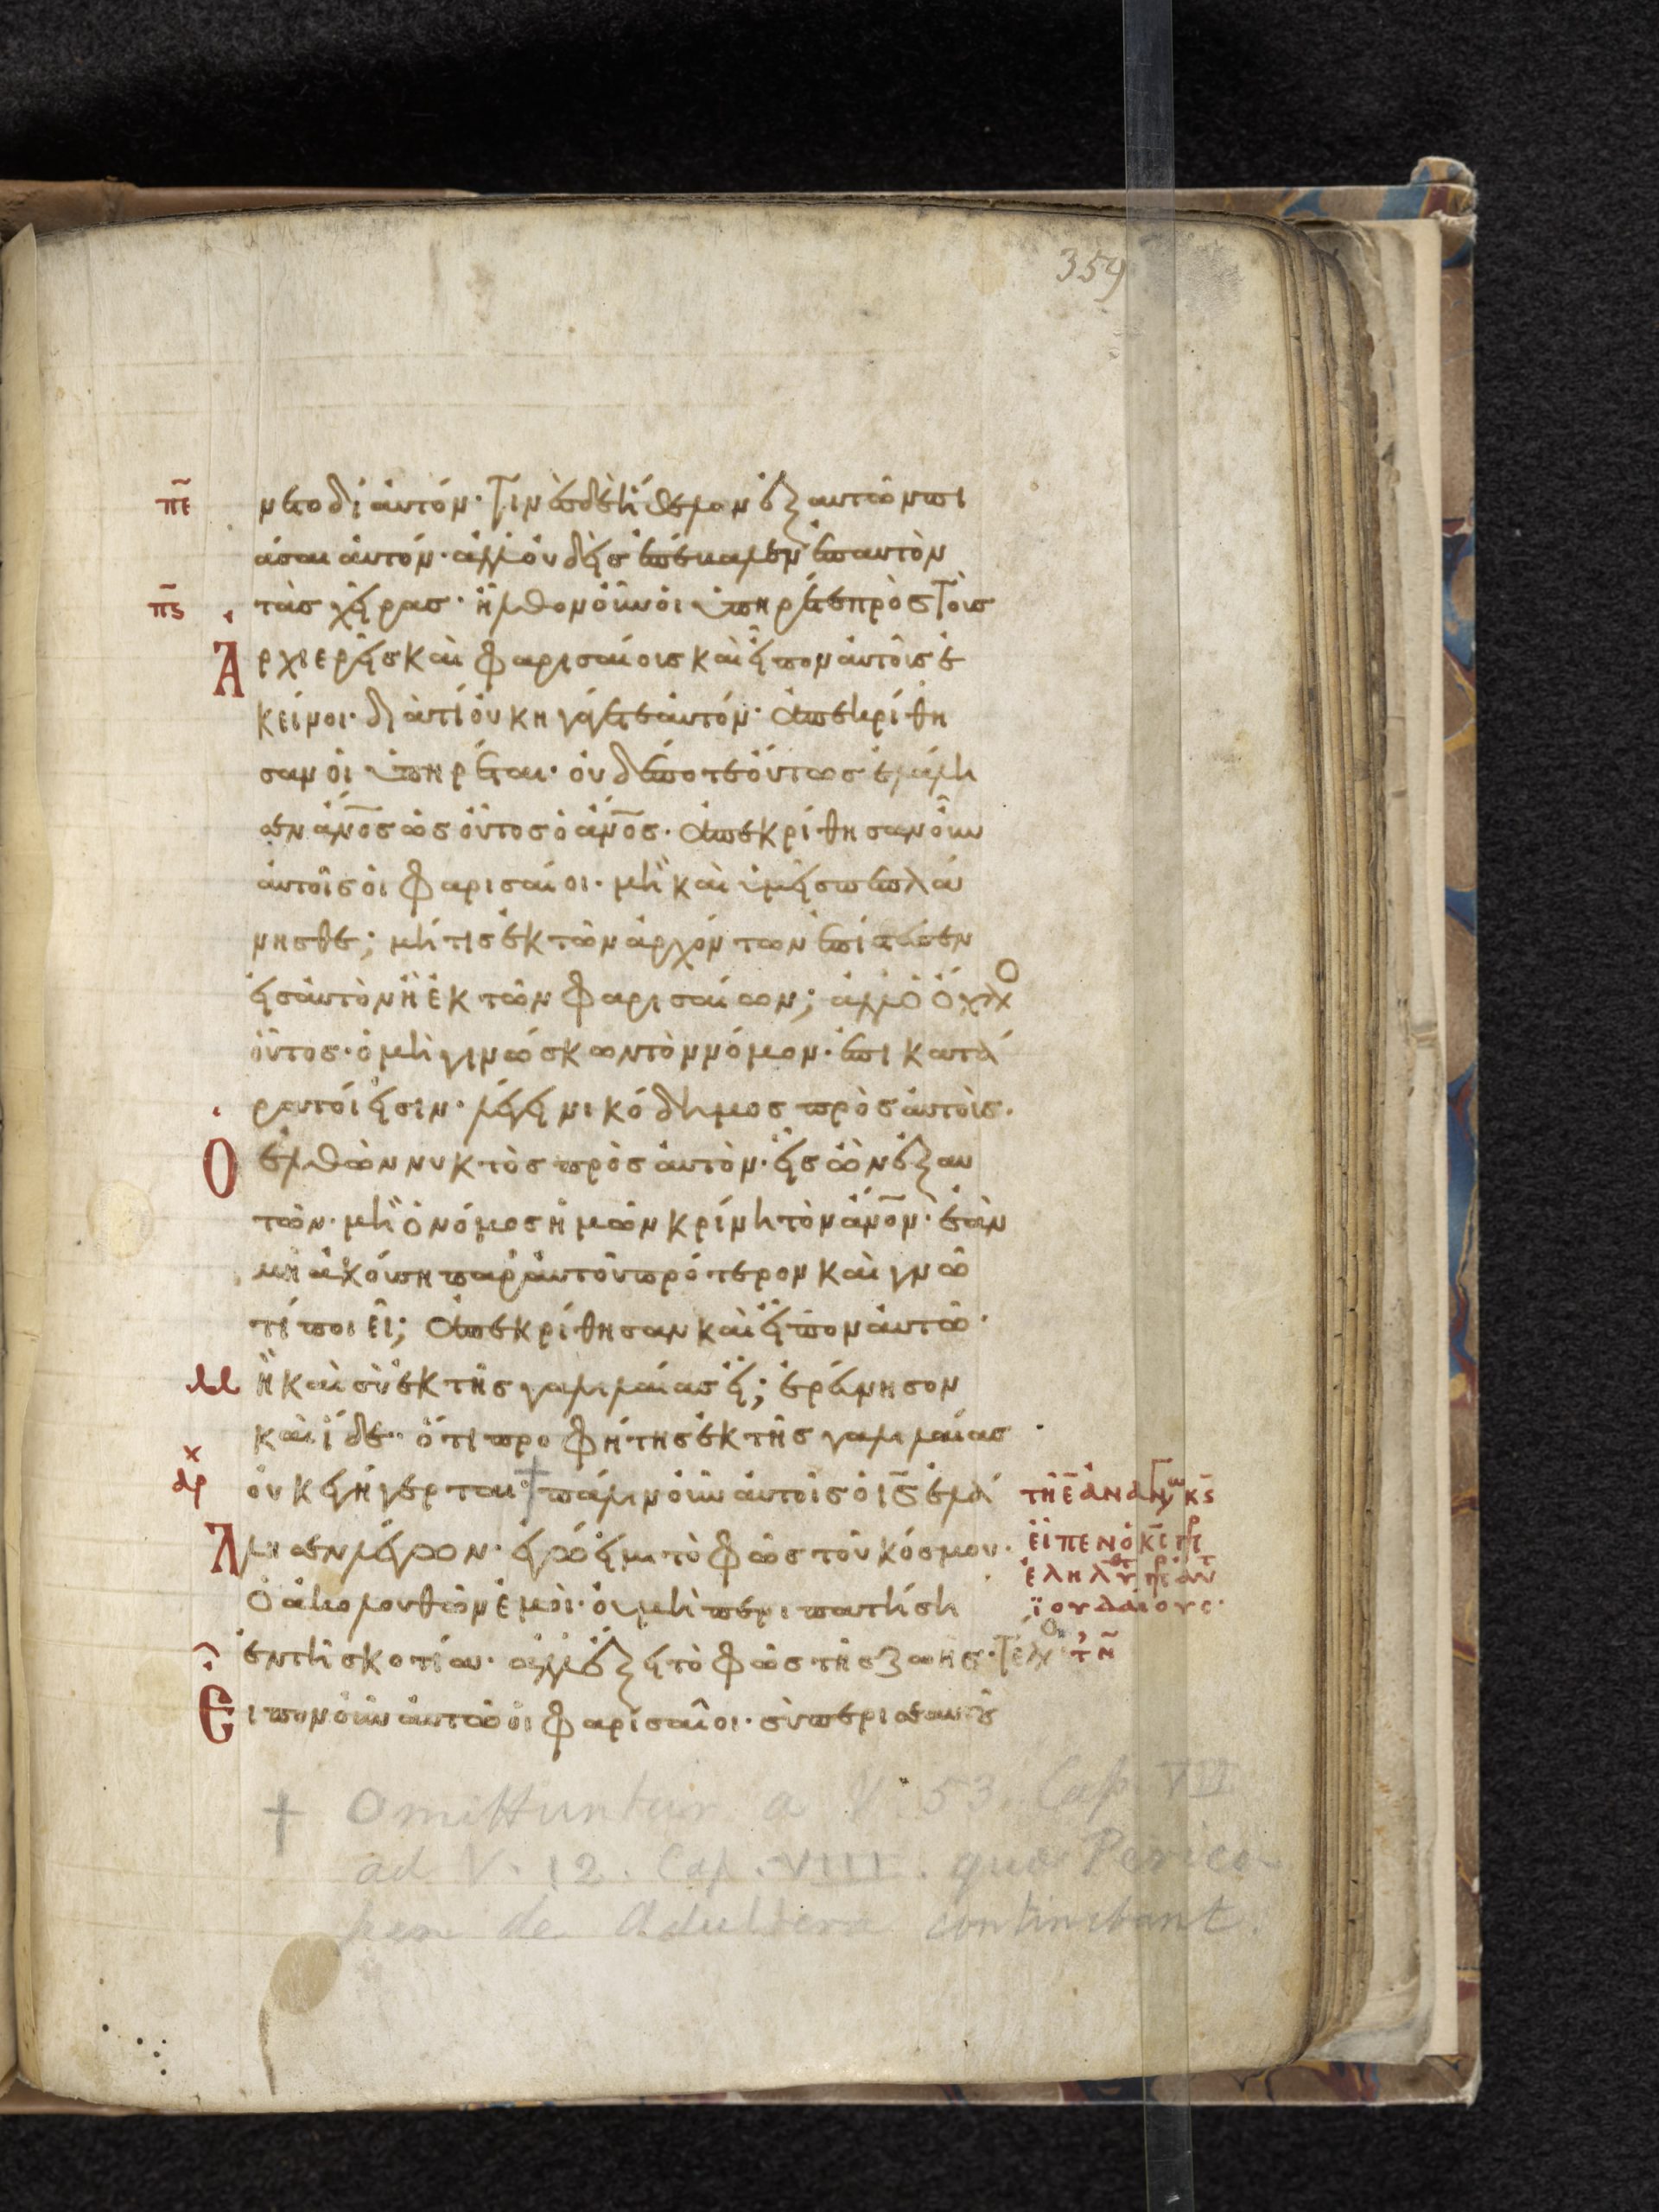 359
πε
νετο δι' αυτόν· Τινὲς δὲ ἤθελον ἐξ αυτῶν πι
άσαι αυτόν· αλλ' ουδεὶς επέβαλεν επ αυτὸν
πς
τὰς χεῖρας· ἦλθον οὖν οι ὑπηρέται πρὸς Τοὺς
Αρχιερεῖς καὶ φαρισαίους καὶ εἶπον αυτοῖς ε
κεῖνοι· διατί ουκ ηγάγετε αυτόν· απεκρίθη
σαν οι ὑπηρέται· ουδέποτε οὕτως ελάλη
σεν ἄνος ὡς οὗτος ὁ ἄνος· απεκρίθησαν οὖν
αυτοῖς οι φαρισαῖοι· μὴ καὶ ὑμεῖς πεπλά
νησθε; μή τις ἐκ τῶν αρχόντων επίστευσεν
εις αυτὸν ἢ ἐκ τῶν φαρισαίων; αλλ' ὁ ὄχλο
οὗτος· ὁ μὴ γινώσκων τὸν νόμον· επικατά
ρατοί εισιν· λέγει νικόδημος πρὸς αυτούς·
Ο ελθὼν νυκτὸς πρὸς αυτὸν· εἷς ὢν ἐξ αυ
τῶν· μὴ ὁ νόμος ἡμῶν κρίνη τὸν ἄνον· ἐὰν
μὴ ακούση παρ' αυτοῦ πρότερον καὶ γνῶ
τί ποιεῖ; απεκρίθησαν καὶ εἶπον αυτῶ·
ἢ καὶ σὺ ἐκ τῆς γαλιλαίας εἶ; ερεύνησον
καὶ ἴδε· ὅτι προφήτης ἐκ τῆς γαλιλαίας
ουκ εγήγερται· † πάλιν οὖν αυτοῖς ὁ ις ελά
Λησεν λέγων· εγώ ειμι τὸ φῶς τοῦ κόσμου·
Ο ακολουθῶν ἐμοὶ· ου μὴ περιπατήση
ἐν τη σκοτία· αλλ' ἕξει τὸ φῶς τῆς ζωῆς·
Ειπον οὖν αυτῶ οι φαρισαῖοι· σὺ περι σεαυτοῦ
εἶπεν ὁ κς
ἰουδαίους·
† Omittuntur a V. 53. Cap. VII
ad V. 12. Cap. VIII. quæ Perico-
pen de Adultera continebant.